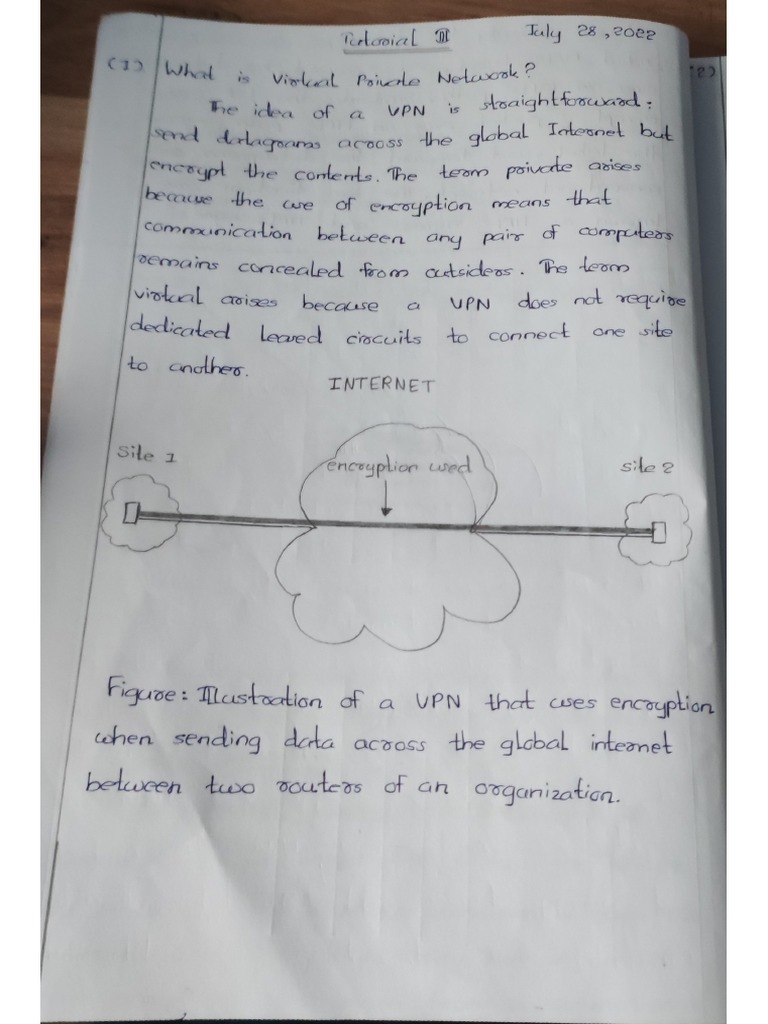 Tutorial III July 28, 2022
(1) What is Virtual Private Network?
The idea of a VPN is straightforward:
send datagrams across the global Internet but
encrypt the contents. The term private arises
because the use of encryption means that
communication between any pair of computers
remains concealed from outsiders. The term
virtual arises because a VPN does not require
dedicated leased circuits to connect one site
to another.
INTERNET
Site 1
encryption used
site 2
Figure: Illustration of a VPN that uses encryption
when sending data across the global internet
between two routers of an organization.
(2)